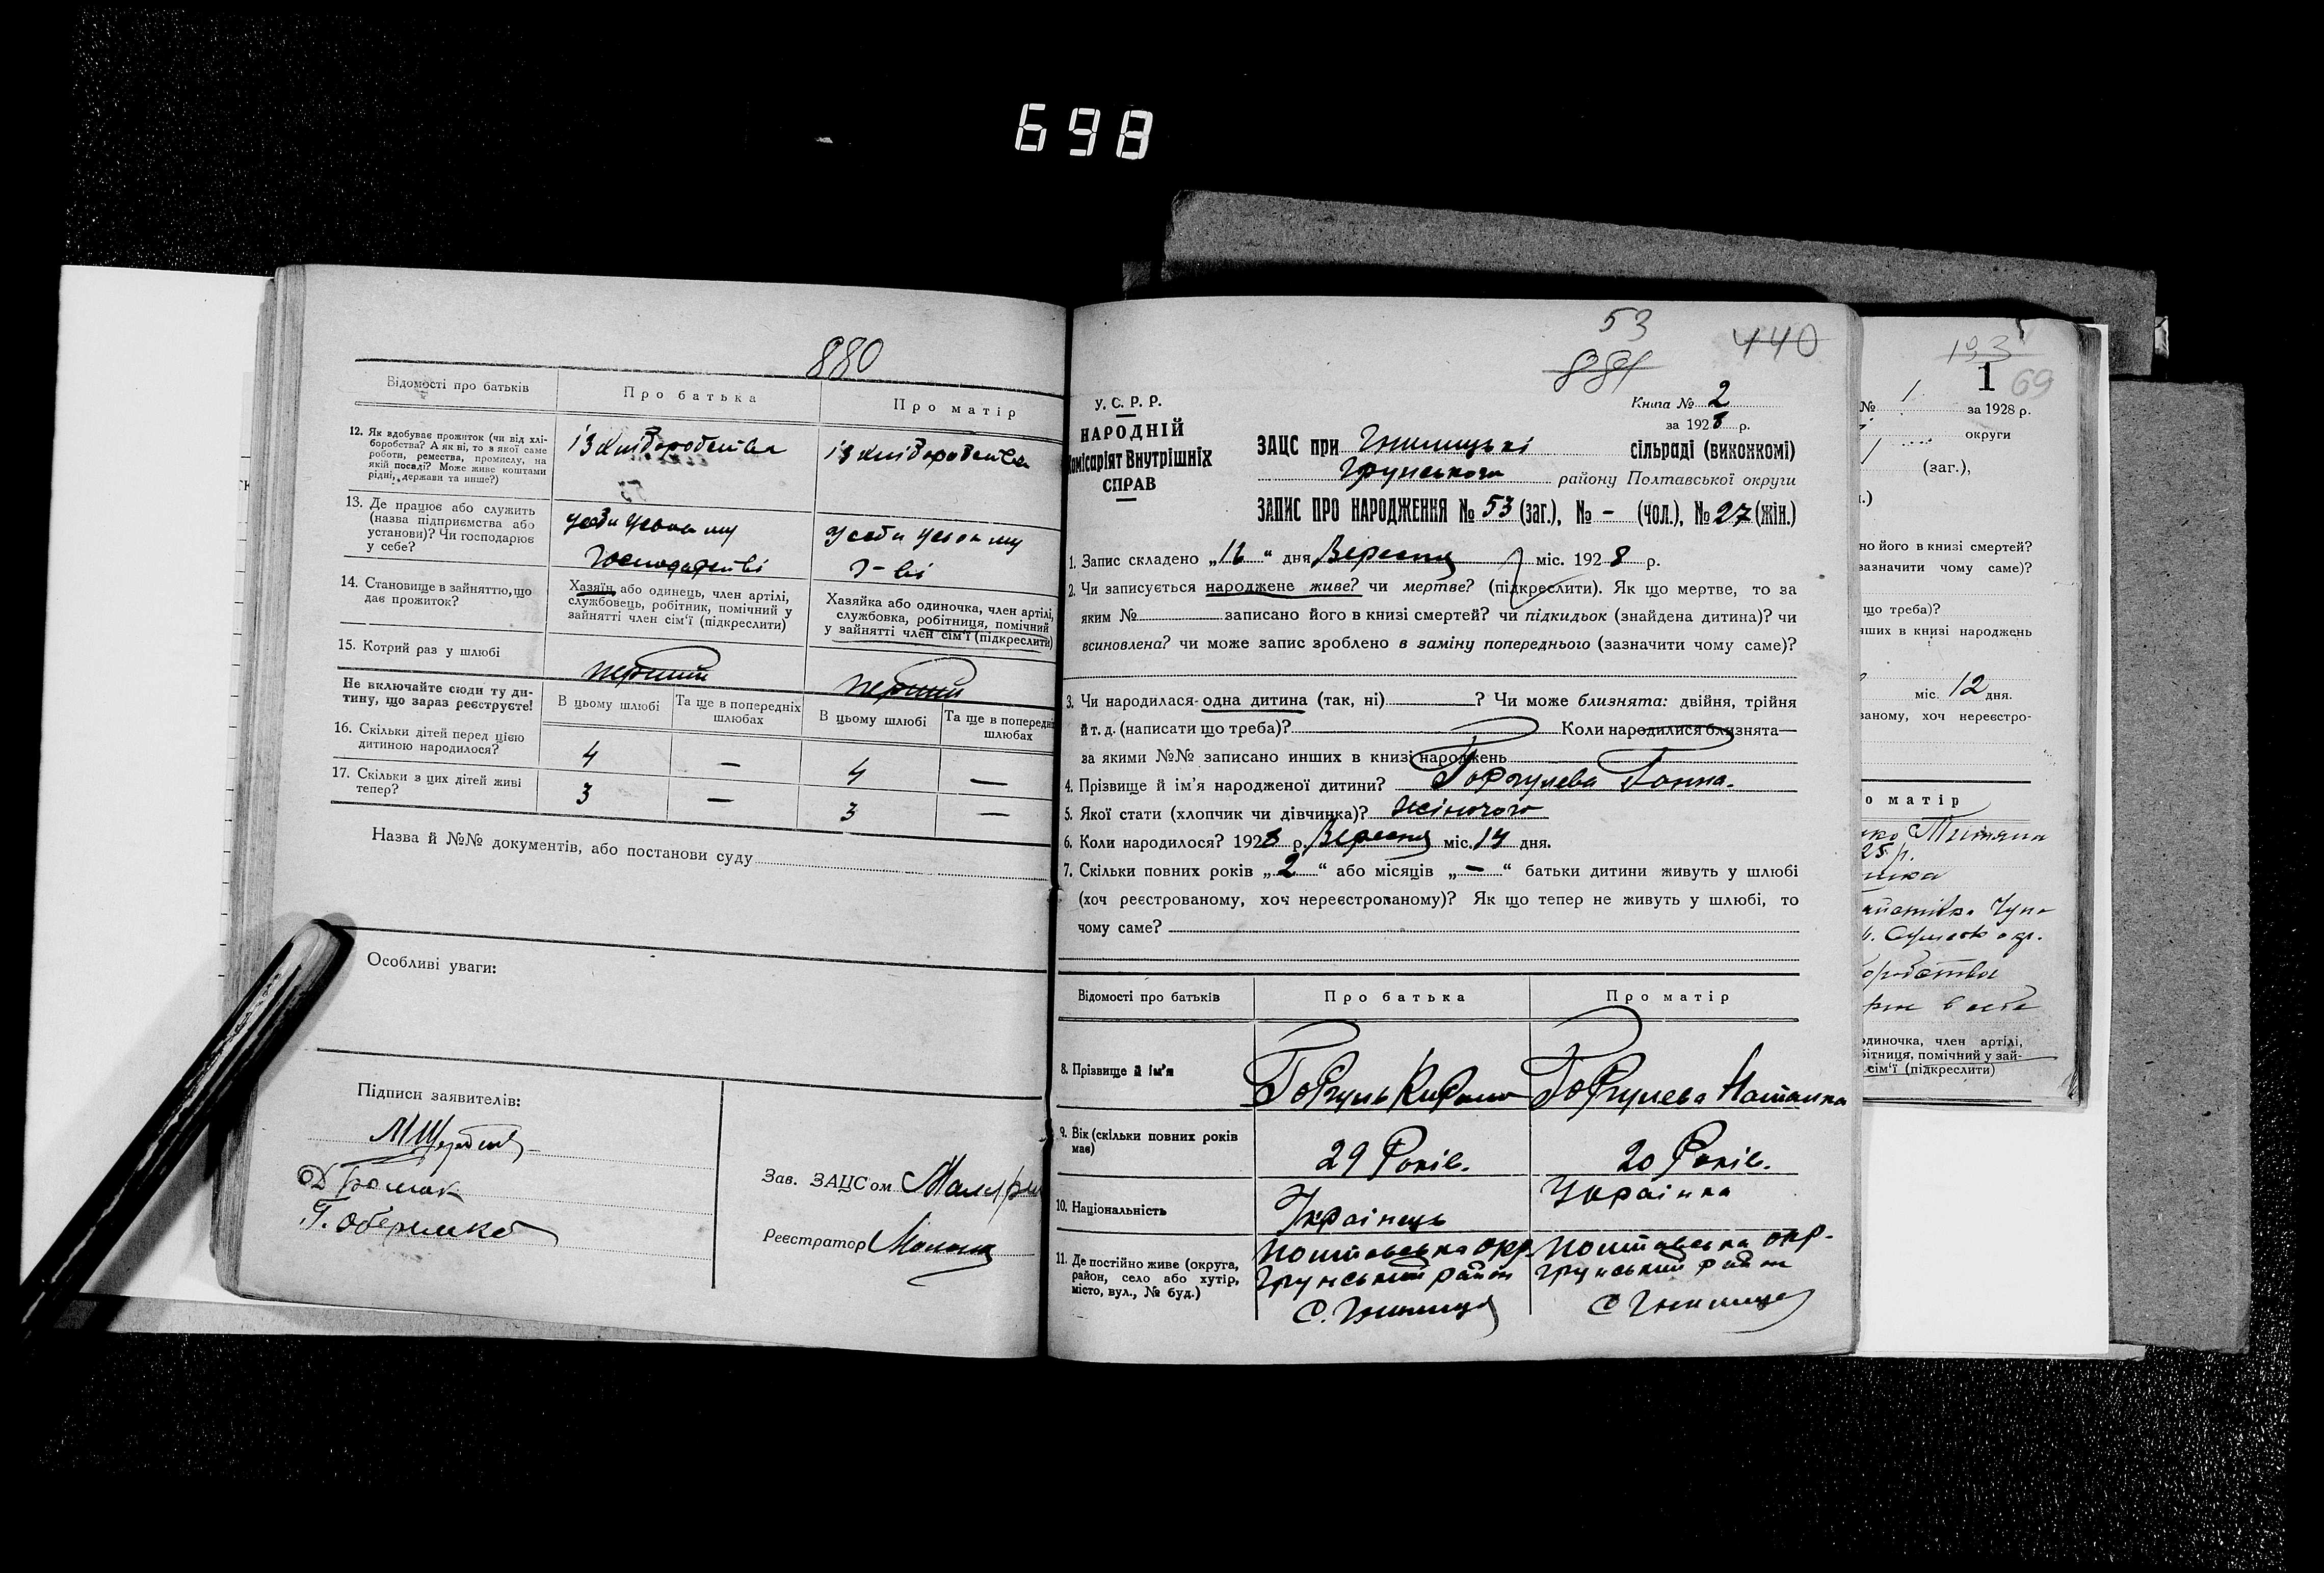 698
880
Відомості про батьків
Про батька
Про матір
12. Як здобуває прожиток (чи від хлі-
боробства? А як ні, то з якої саме
роботи, ремества, промислу, на
якій посаді? Може живе коштами
рідні, держави та инше?)
із хліборобства
із хліборобства
13. Де працює або служить
(назва підприємства або
установи)? Чи господарює
у себе?
господарстві
14. Становище в зайняттю, що
дає прожиток?
Хазяїн або одинець, член артілі,
службовець, робітник, помічний у
зайнятті член сім'ї (підкреслити)
Хазяйка або одиночка, член артілі,
службовка, робітниця, помічний
у зайнятті член сім'ї (підкреслити)
15. Котрий раз у шлюбі
перший
перший
Не включайте сюди ту ди-
тину, що зараз реєструєте!
В цьому шлюбі
Та ще в попередніх
шлюбах
В цьому шлюбі
Та ще в попередніх
шлюбах
16. Скільки дітей перед цією
дитиною народилося?
4 — 4 —
17. Скільки з цих дітей живі
тепер?
3 — 3 —
Назва й №№ документів, або постанови суду
Особливі уваги:
Підписи заявителів:
Зав. ЗАЦС'ом
Реєстратор
53
881
440
У. С. Р. Р.
НАРОДНІЙ
Комісаріят Внутрішніх
СПРАВ
Книга № 2
за 1928 р.
ЗАЦС при Гнилицькі сільраді (виконкомі)
Грунського району Полтавської округи
ЗАПИС ПРО НАРОДЖЕННЯ № 53 (заг.), № - (чол.), № 27 (жін.)
1. Запис складено „16“ дня Вересня міс. 1928 р.
2. Чи записується народжене живе? чи мертве? (підкреслити). Як що мертве, то за
яким № записано його в книзі смертей? чи підкидьок (знайдена дитина)? чи
всиновлена? чи може запис зроблено в заміну попереднього (зазначити чому саме)?
3. Чи народилася одна дитина (так, ні) ? Чи може близнята: двійня, трійня
й т. д. (написати що треба)? Коли народилися близнята—
за якими №№ записано инших в книзі народжень
4. Прізвище й ім'я народженої дитини? Горгулева Ганна.
5. Якої стати (хлопчик чи дівчинка)? жіночого
6. Коли народилося? 1928 р. Вересня міс. 14 дня.
7. Скільки повних років „2“ або місяців „—“ батьки дитини живуть у шлюбі
(хоч реєстрованому, хоч нереєстрованому)? Як що тепер не живуть у шлюбі, то
чому саме?
Відомості про батьків
Про батька
Про матір
8. Прізвище й ім'я
Горгуль Кирило
Горгулева Наталка
9. Вік (скільки повних років
має)
29 Років.
20 Років.
10. Національність
Українець
Українка
11. Де постійно живе (округа,
район, село або хутір,
місто, вул., № буд.)
Полтавська окр.
Грунський район
С. Гнилиця
Полтавська окр.
Грунський район
С Гнилиця
193
1
69
№ 1 за 1928 р.
округи
(заг.),
но його в книзі смертей?
зазначити чому саме)?
що треба)?
нших в книзі народжень
міс. 12 дня.
ваному, хоч нереєстро-
о матір
25 р.
диночка, член артілі,
бітниця, помічний у зай-
сім'ї (підкреслити)